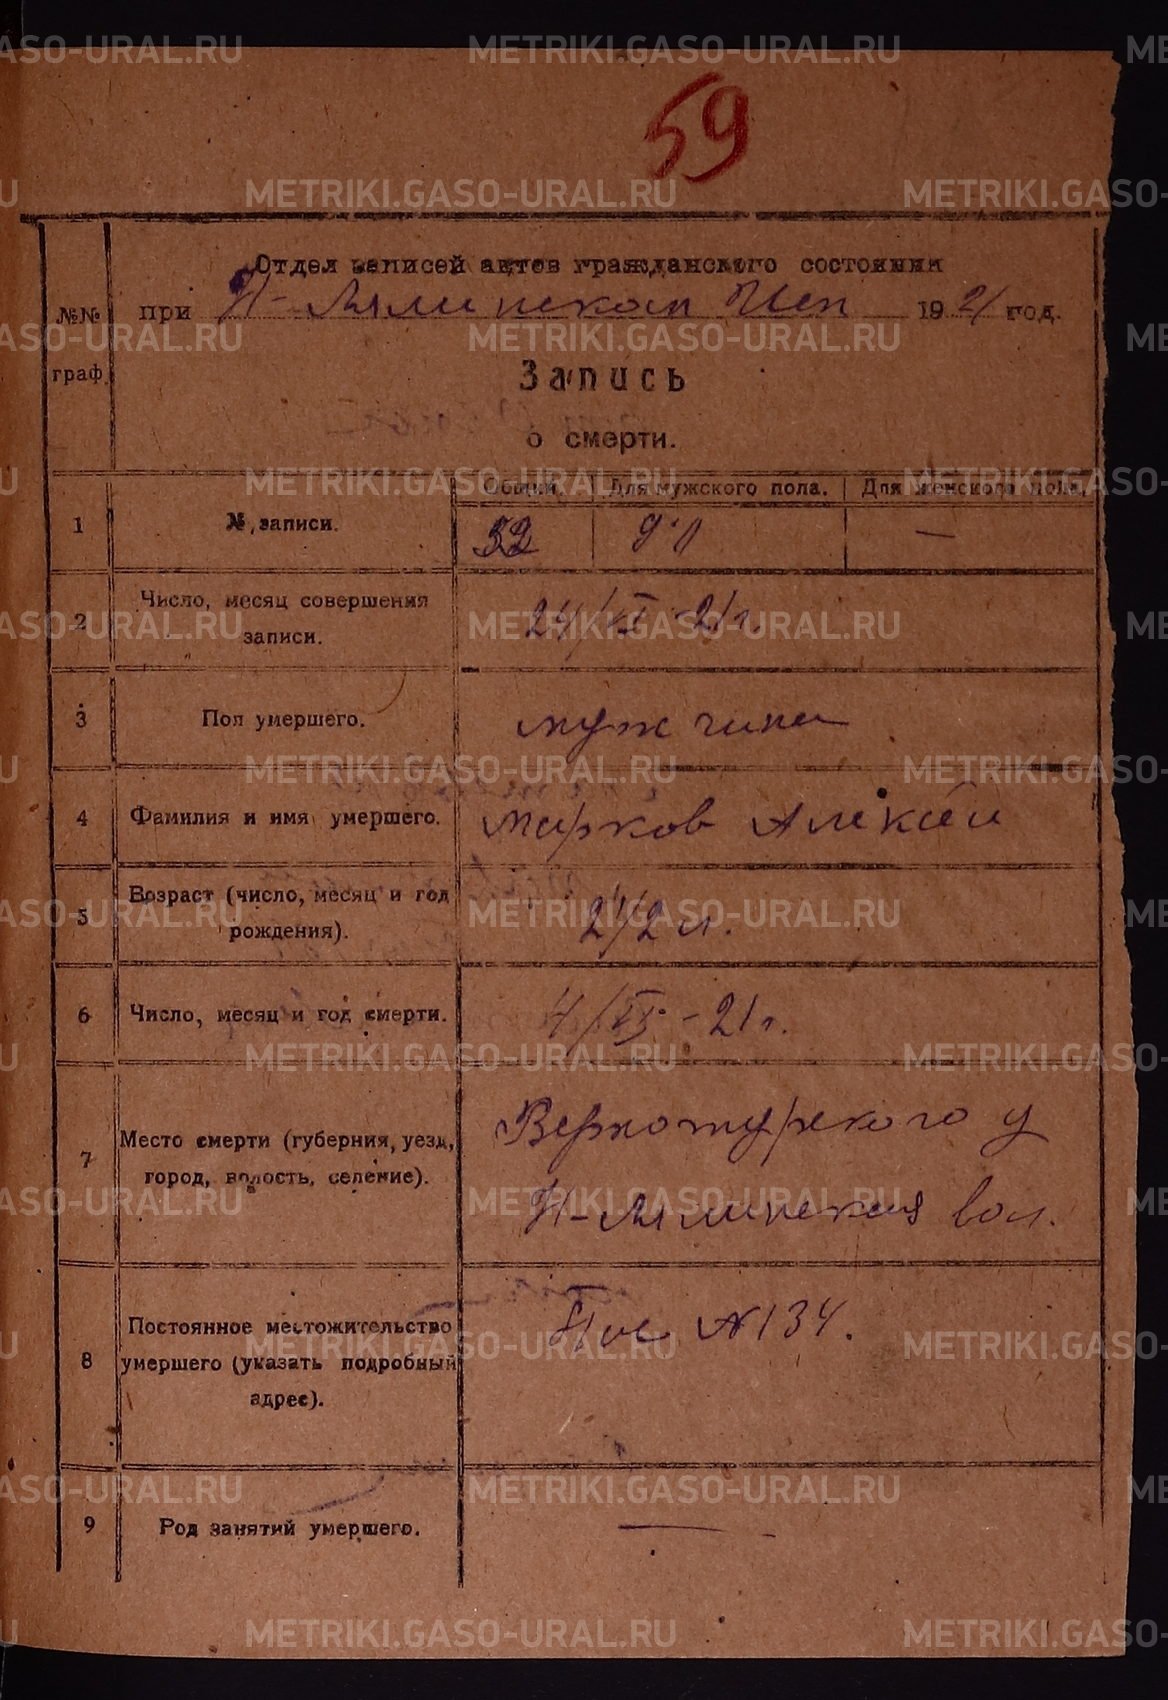 59
Отдел записей актов гражданского состояния
при Н-Лялинском Исп 1921 год.
№№ граф.
Запись
о смерти.
Общий. Для мужского пола. Для женского пола.
1 №, записи. 52 —
2 Число, месяц совершения записи. 24/VI-21 г.
3 Пол умершего. мужчина
4 Фамилия и имя умершего. Марков Алексей
5 Возраст (число, месяц и год рождения). 2 1/2 л.
6 Число, месяц и год смерти. 4/VI-21 г.
7 Место смерти (губерния, уезд, город, волость, селение). Верхотурского у
Н-Лялинская вол.
8 Постоянное местожительство умершего (указать подробный адрес). Пос №134.
9 Род занятий умершего. —
METRIKI.GASO-URAL.RU